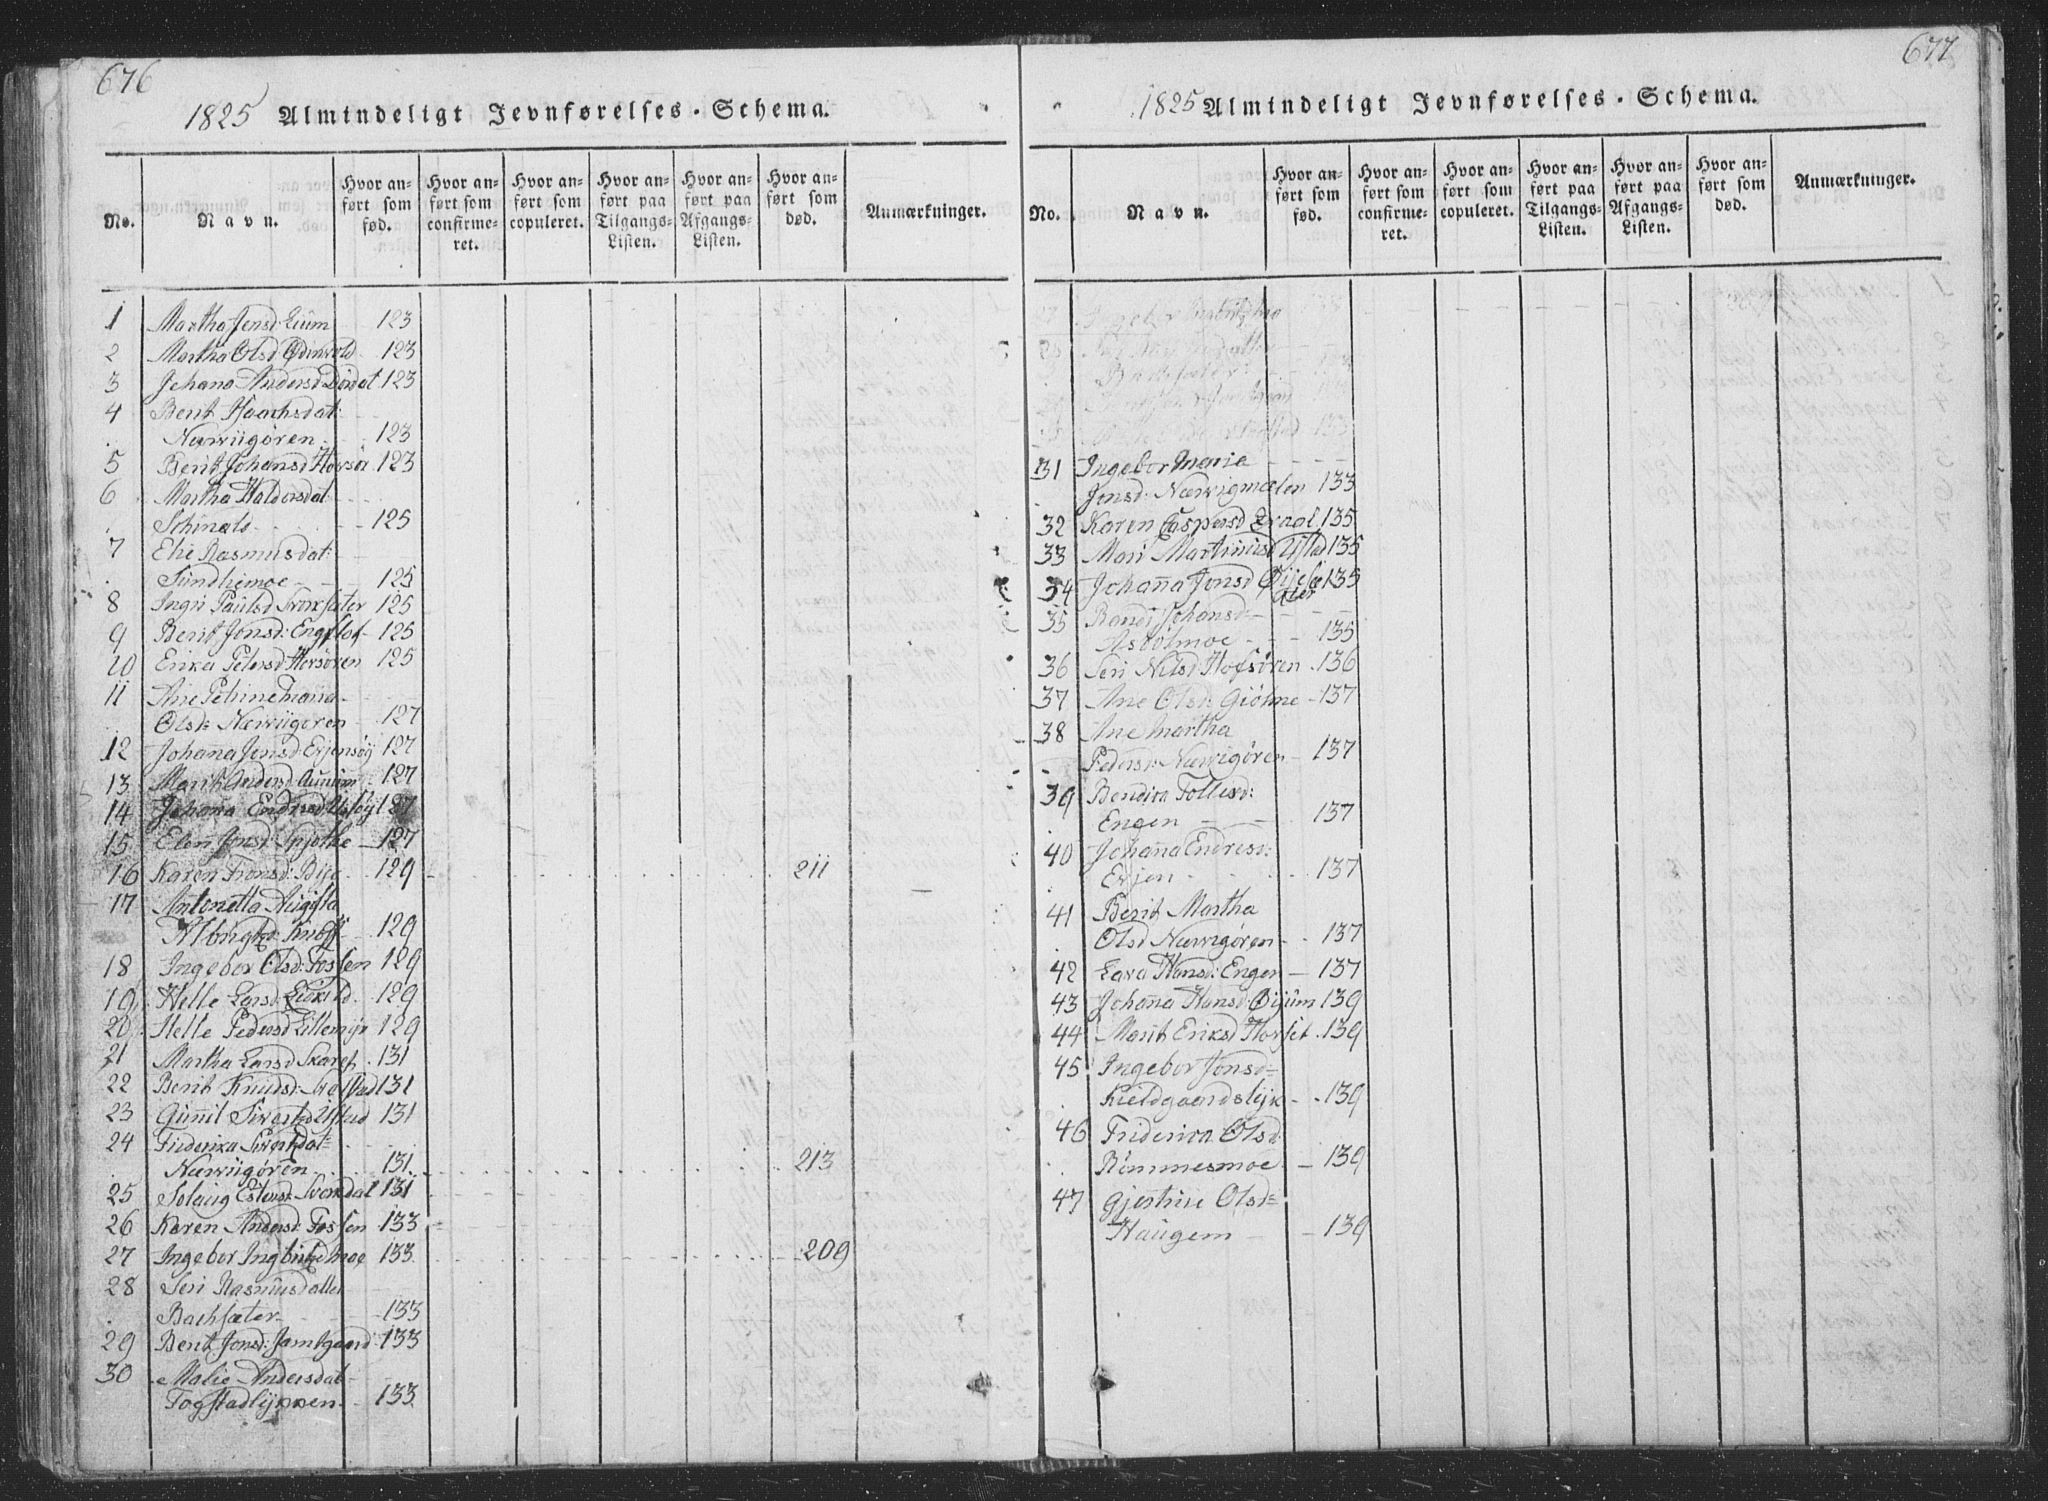 676
1825 Almindeligt Jevnførelses-Schema.
No.
Navn.
Hvor anført som fød.
Hvor anført som confirmeret.
Hvor anført som copuleret.
Hvor anført paa Tilgangs-Listen.
Hvor anført paa Afgangs-Listen.
Hvor anført som død.
Anmærkninger.
1 Martha Jensd: Lium 123
2 Martha Olsd Ødinvold 123
3 Johana Andersd 123
4 Berit Haachsdat:
Nærviigøren 123
5 Berit Johansd 123
6 Martha Haldorsdat
125
7 Elie Rasmusdat:
Sundhimoe 125
8 Ingri Paulsd Svorksæter 125
9 Berit Jonsd: Engflot 125
10 Erika Petersd Horsøren 125
11 Ane Petrine
Olsd: Nærviigøren 127
12 Johana Jonsd: Evjensøy 127
13 Marit Andersd Aunüm 127
14 Johana Endresd 127
15 Elen Jonsd: Spjothe 127
16 Karen Tronsd: Bye 129 211
17 Antonetta
129
18 Ingebor Olsd: Fossen 129
19 Helle Larsd 129
20 Helle Pedersd Lillemyr 129
21 Martha Larsd 131
22 Berit Knudsd: 131
23 Gunnil Ystad 131
24 Friderika
Nærviigøren 131. 213
25 Solaug Estensd: Svorkdal 131
26 Karen Andersd: Fossen 133
27 Ingebor Ingbrigtsd moe 133 209
28 Seri Rasmusdatter
Bachsæter 133
29 Berit Jonsd: Jamtgaard 133
30 Malie Andersdat
Fogstadlykken 133
677
1825 Almindeligt Jevnførelses-Schema.
No.
Navn.
Hvor anført som fød.
Hvor anført som confirmeret.
Hvor anført som copuleret.
Hvor anført paa Tilgangs-Listen.
Hvor anført paa Afgangs-Listen.
Hvor anført som død.
Anmærkninger.
31 Ingebor Maria
Jonsd: Nærvigmælen 133
32 Karen Caspersd 135
33 Mari Martinusd Ystad 135
34 Johana Jonsd Øijesæter 135
35 Randi Johansd:
Asbölmoe 135
36 Seri Nilsd Hofsøren 136
37 Ane Olsd: Giølme 137
38 Ane Martha
Pedersd: Nærvigøren 137
39 Bendita Tollevsd:
Engen 137
40 Johana Endresd:
Evjen 137
41 Berit Martha
Olsd Nærvigøren 137
42 Lava Hansd: Engen 137
43 Johana Hansd: Øijüm 139
44 Marit Eriksd Horset 139
45 Ingebor Jonsd=
Kieldgaardslyk 139
46 Friderica Olsd
Rømmesmoe 139
47 Gjertrue Olsd=
Haugem 139